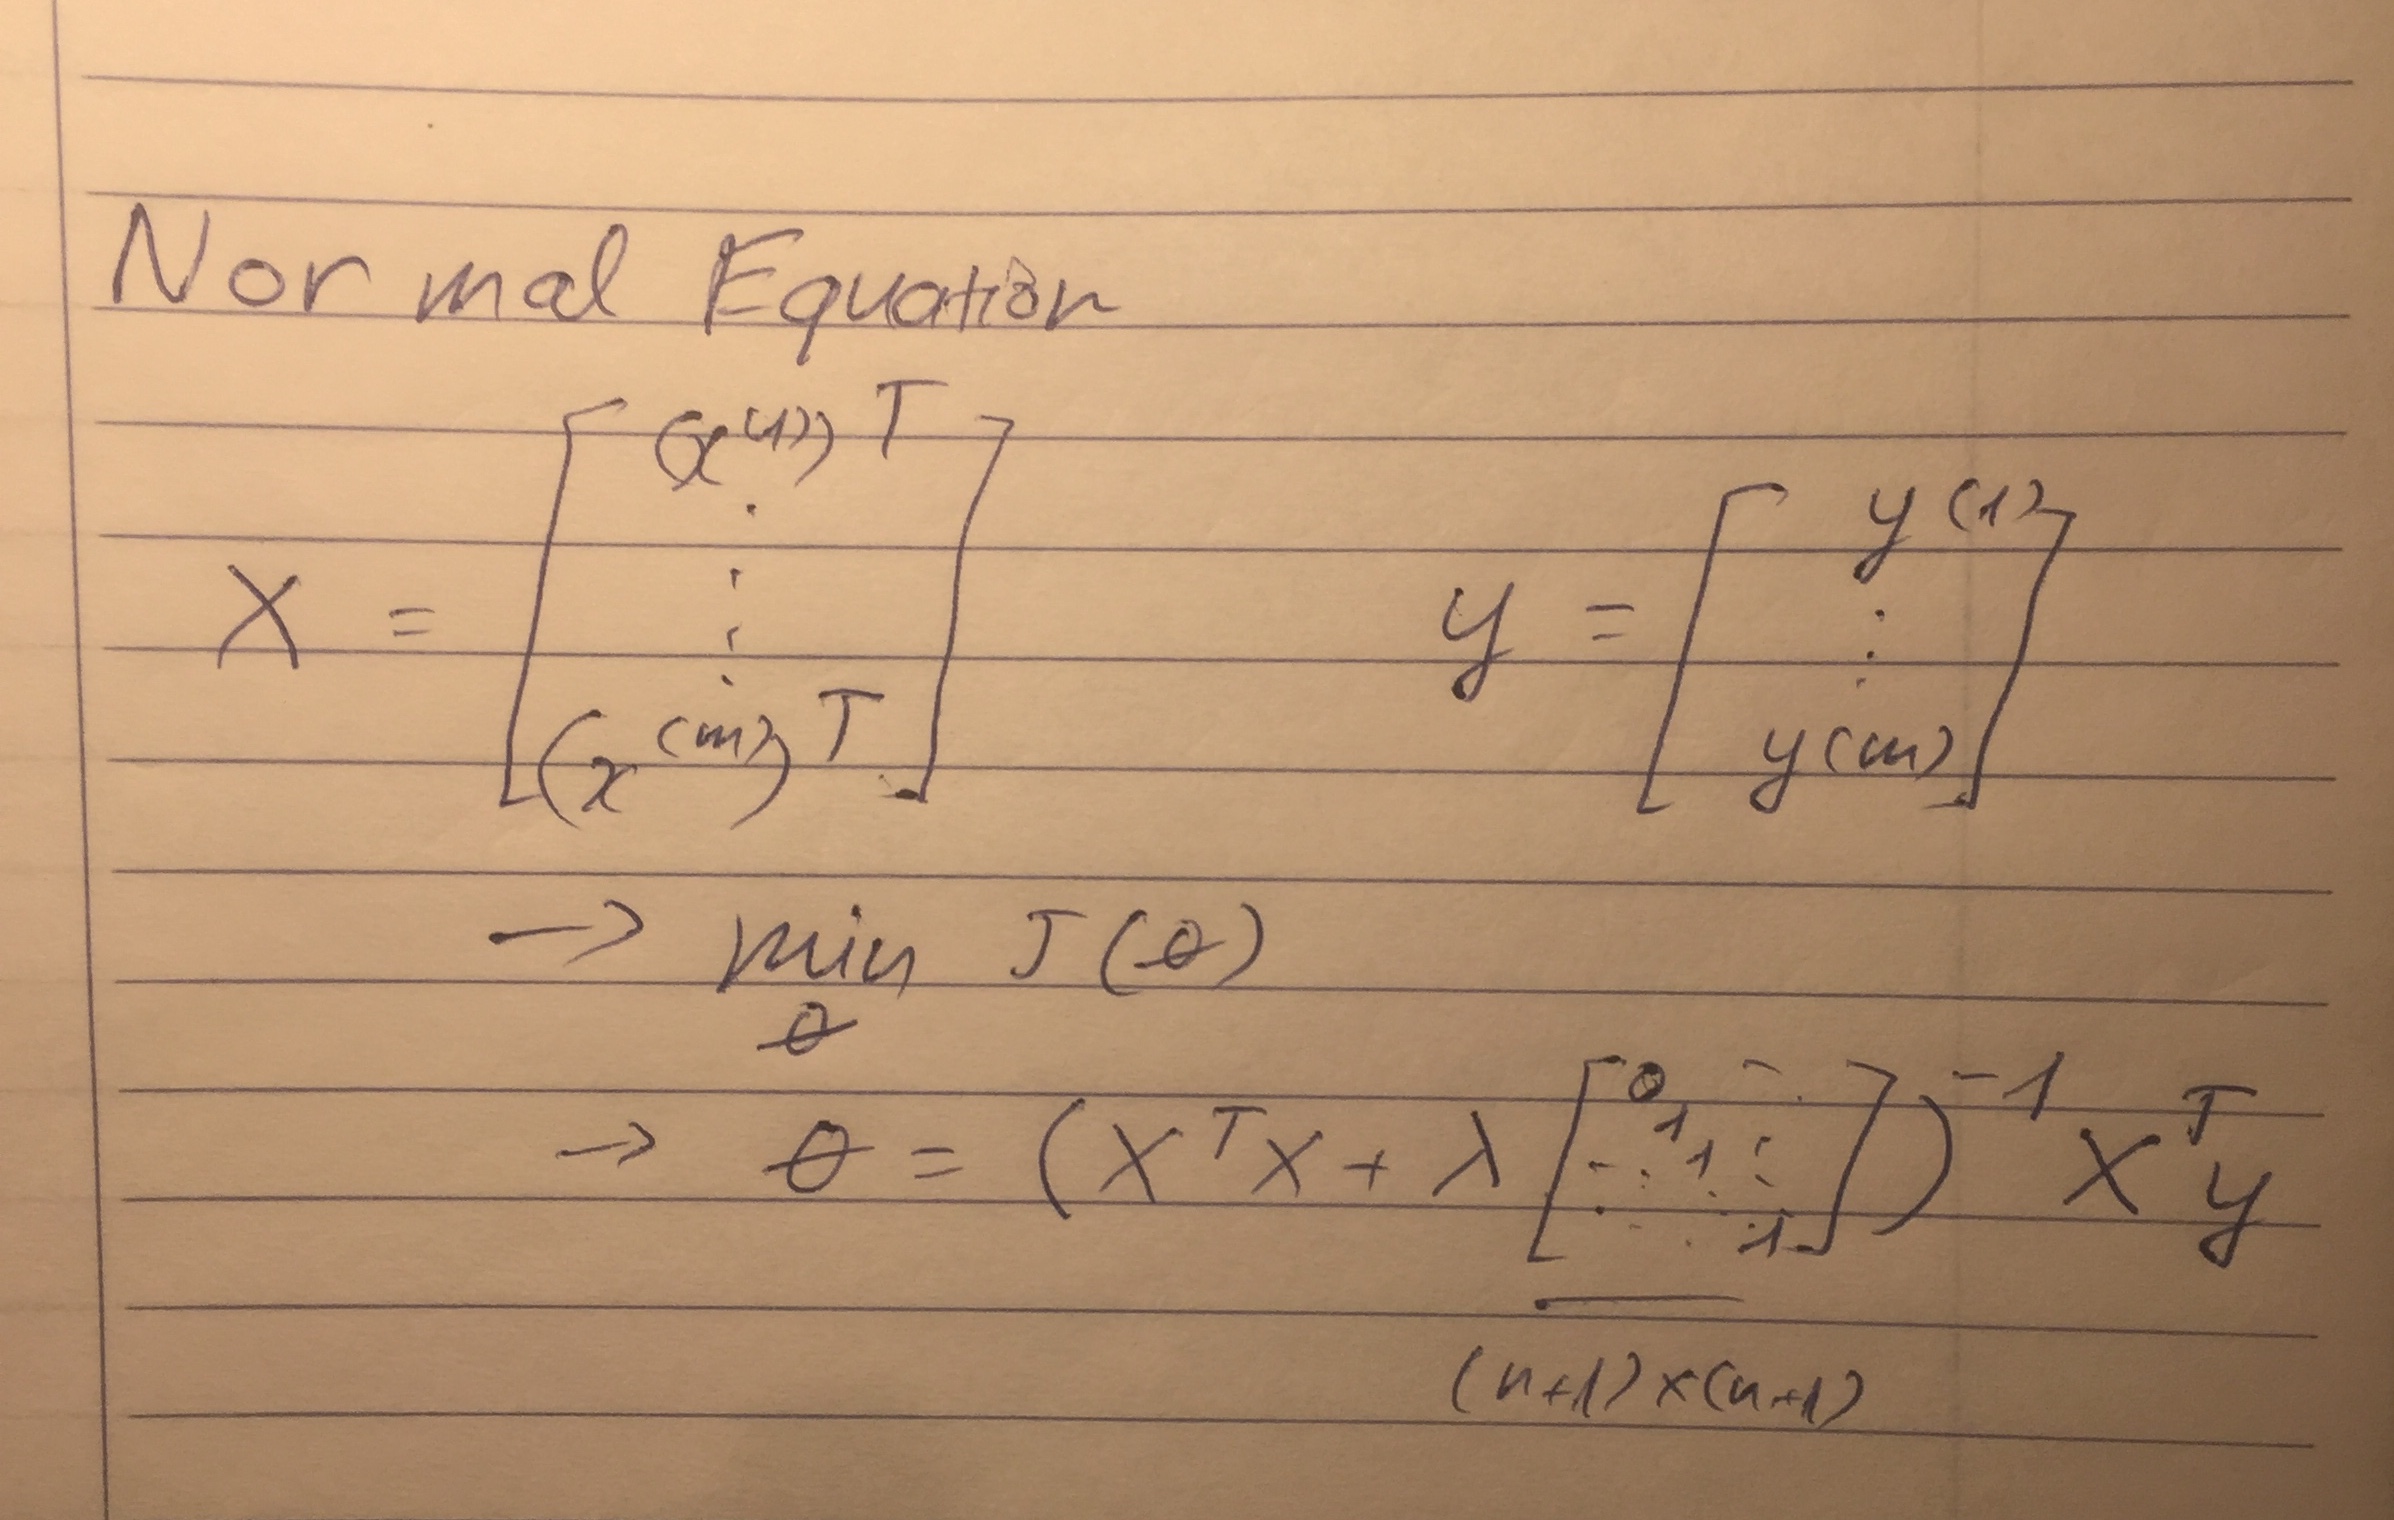 Normal Equation
X = [ (x^(1))^T ⋮ (x^(m))^T ]    y = [ y^(1) ⋮ y^(m) ]
→ min_θ J(θ)
→ θ = (X^T X + λ [ 0 1 1 ⋱ 1 ])^-1 X^T y
(n+1)×(n+1)